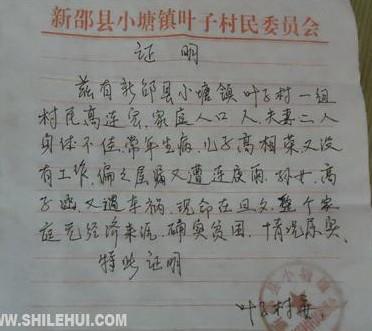 新邵县小塘镇叶子村民委员会
证明
兹有新邵县小塘镇叶子村一组
村民高连家,家庭人口 人,夫妻二人
身体不佳,常年生病,儿子高相荣又没
有工作,偏屋漏又遭连夜雨,孙女,高
子 ,又遭车祸,现命在旦夕,整个家
庭无经济来源,确实贫困,情况属实。
特此证明
叶子村委
WWW.SHILEHUI.COM
SHILEHUI.COM